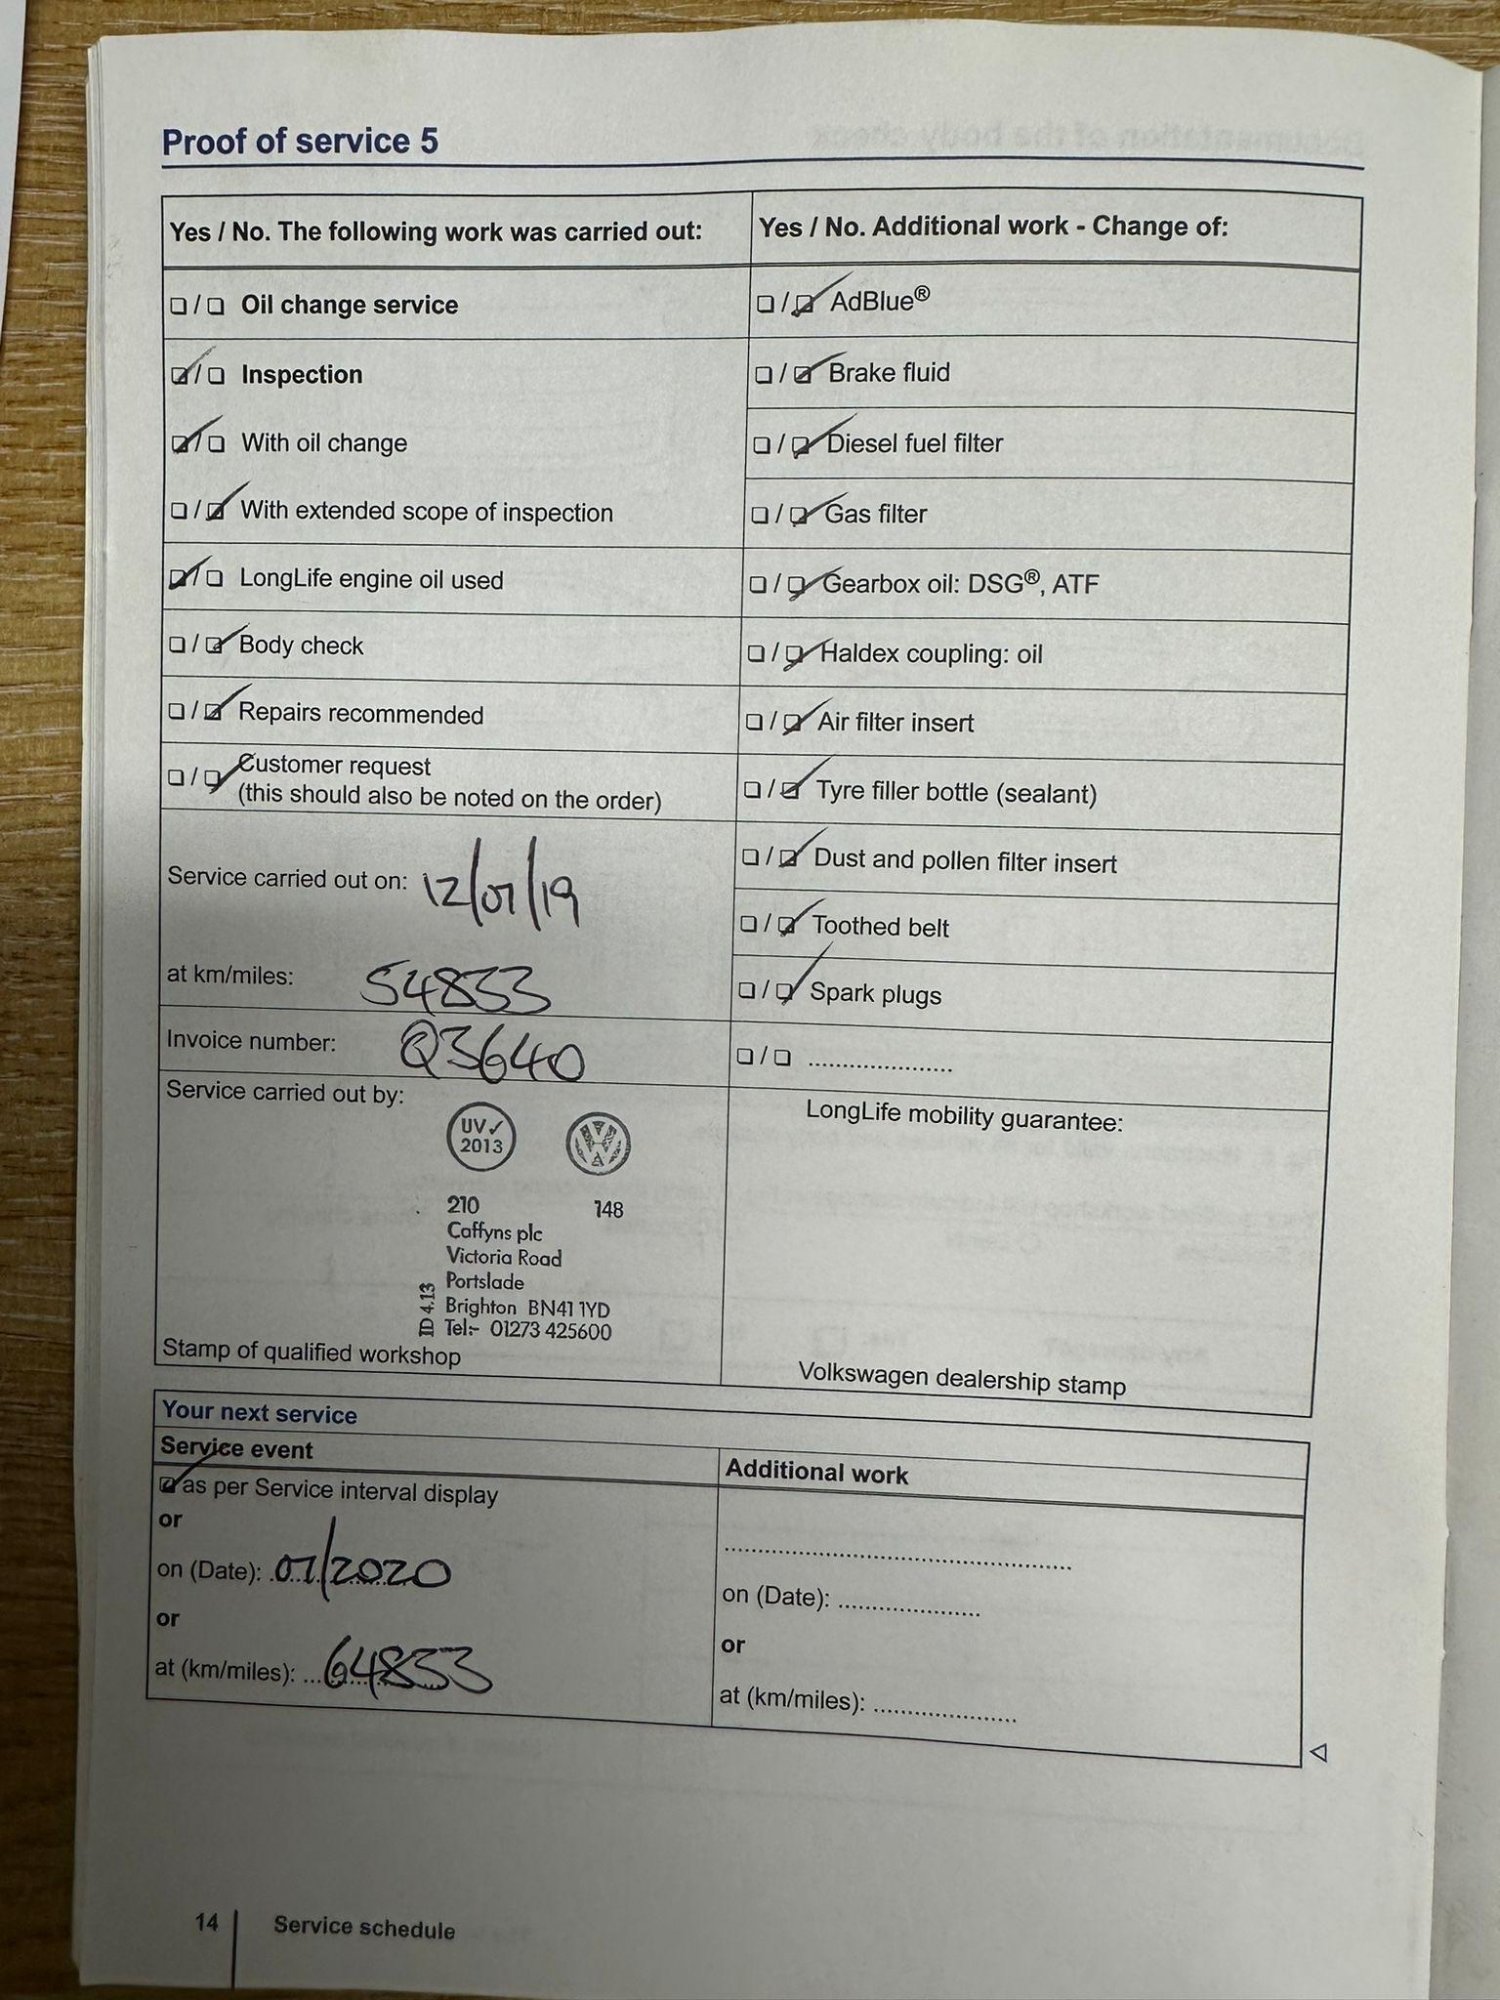 Proof of service 5
Yes / No. The following work was carried out:
Yes / No. Additional work - Change of:
/ Oil change service
/ AdBlue®
/ Inspection
/ Brake fluid
/ With oil change
/ Diesel fuel filter
/ With extended scope of inspection
/ Gas filter
/ LongLife engine oil used
/ Gearbox oil: DSG®, ATF
/ Body check
/ Haldex coupling: oil
/ Repairs recommended
/ Air filter insert
/ Customer request
(this should also be noted on the order)
/ Tyre filler bottle (sealant)
Service carried out on: 12/07/19
/ Dust and pollen filter insert
/ Toothed belt
at km/miles: 54833
/ Spark plugs
Invoice number: Q3640
/ ......................
Service carried out by:
UV✓
2013
VW
210 148
Caffyns plc
Victoria Road
Portslade
Brighton BN41 1YD
Tel:- 01273 425600
ID 4.13
Stamp of qualified workshop
LongLife mobility guarantee:
Volkswagen dealership stamp
Your next service
Service event
Additional work
as per Service interval display
or
on (Date): 07/2020
or
at (km/miles): 64833
on (Date): ......................
or
at (km/miles): ......................
14 Service schedule